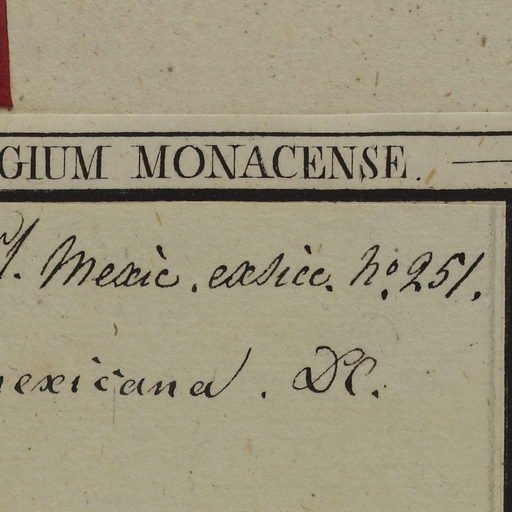 GIUM MONACENSE.
l. Mexic. exsicc. no. 251.
exicana. DC.